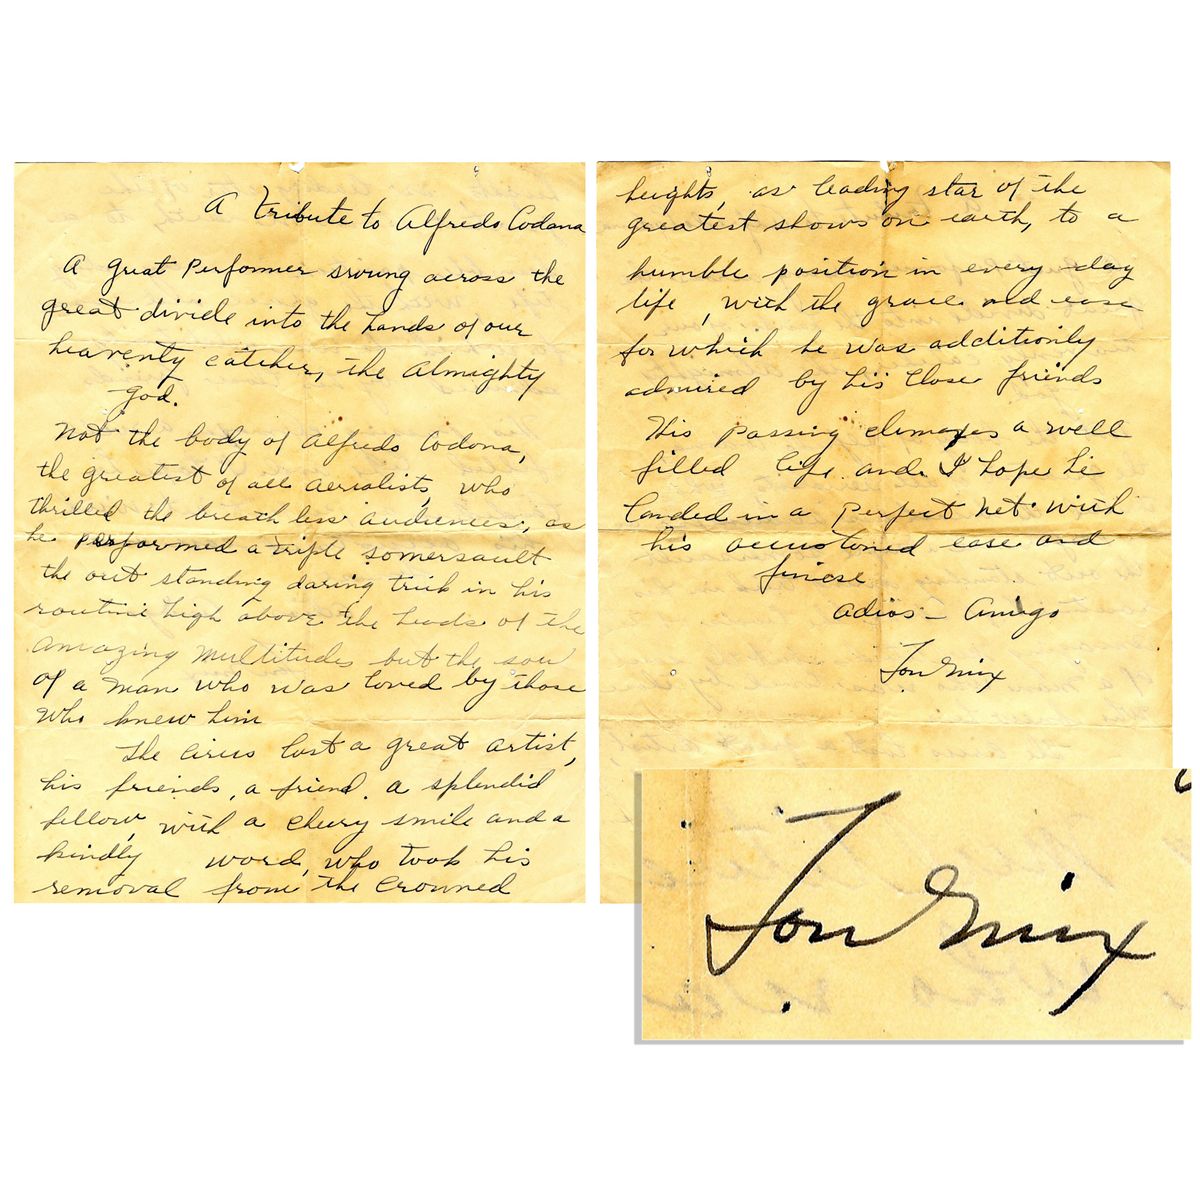 A tribute to Alfredo Codona
A great Performer swung across the
great divide into the hands of our
heavenly catcher, the Almighty
God.
Not the body of Alfredo Codona,
the greatest of all aerialists, who
thrilled the breathless audiences, as
he performed a triple somersault
the out standing daring trick in his
routine high above the heads of the
amazing multitudes but the soul
of a man who was loved by those
who knew him
The circus lost a great artist,
his friends, a friend. a splendid
fellow, with a cheery smile and a
kindly word, who took his
removal from the crowned
heights, as leading star of the
greatest shows on earth, to a
humble position in every day
life, with the grace and ease
for which he was additionly
admired by his close friends
His passing climaxes a well
filled life and I hope he
landed in a Perfect net with
his accustomed ease and
finiese
adios - Amigo
Tom Mix
Tom Mix